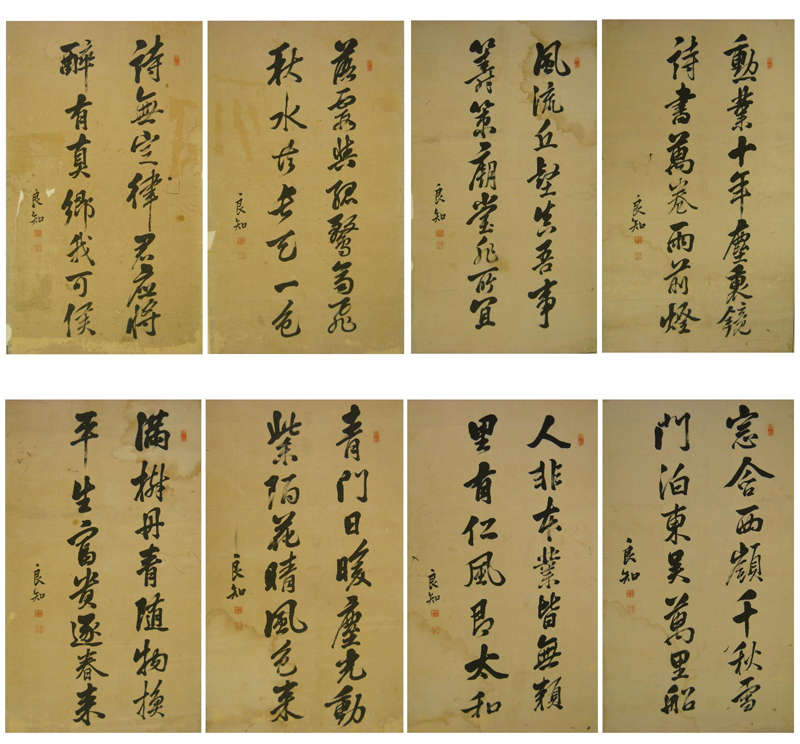 勳業十年塵裏鏡
詩書萬卷雨前燈
良知
風流丘壑真吾事
籌策廟堂非所宜
良知
落霞與孤鶩齊飛
秋水共長天一色
良知
詩無定律君應將
醉有真鄉我可侯
良知
窓含西嶺千秋雪
門泊東吳萬里船
良知
人非本業皆無類
里有仁風即太和
良知
青門日暖塵光動
紫陌花晴風色来
良知
滿樹丹青随物換
平生富貴逐春来
良知